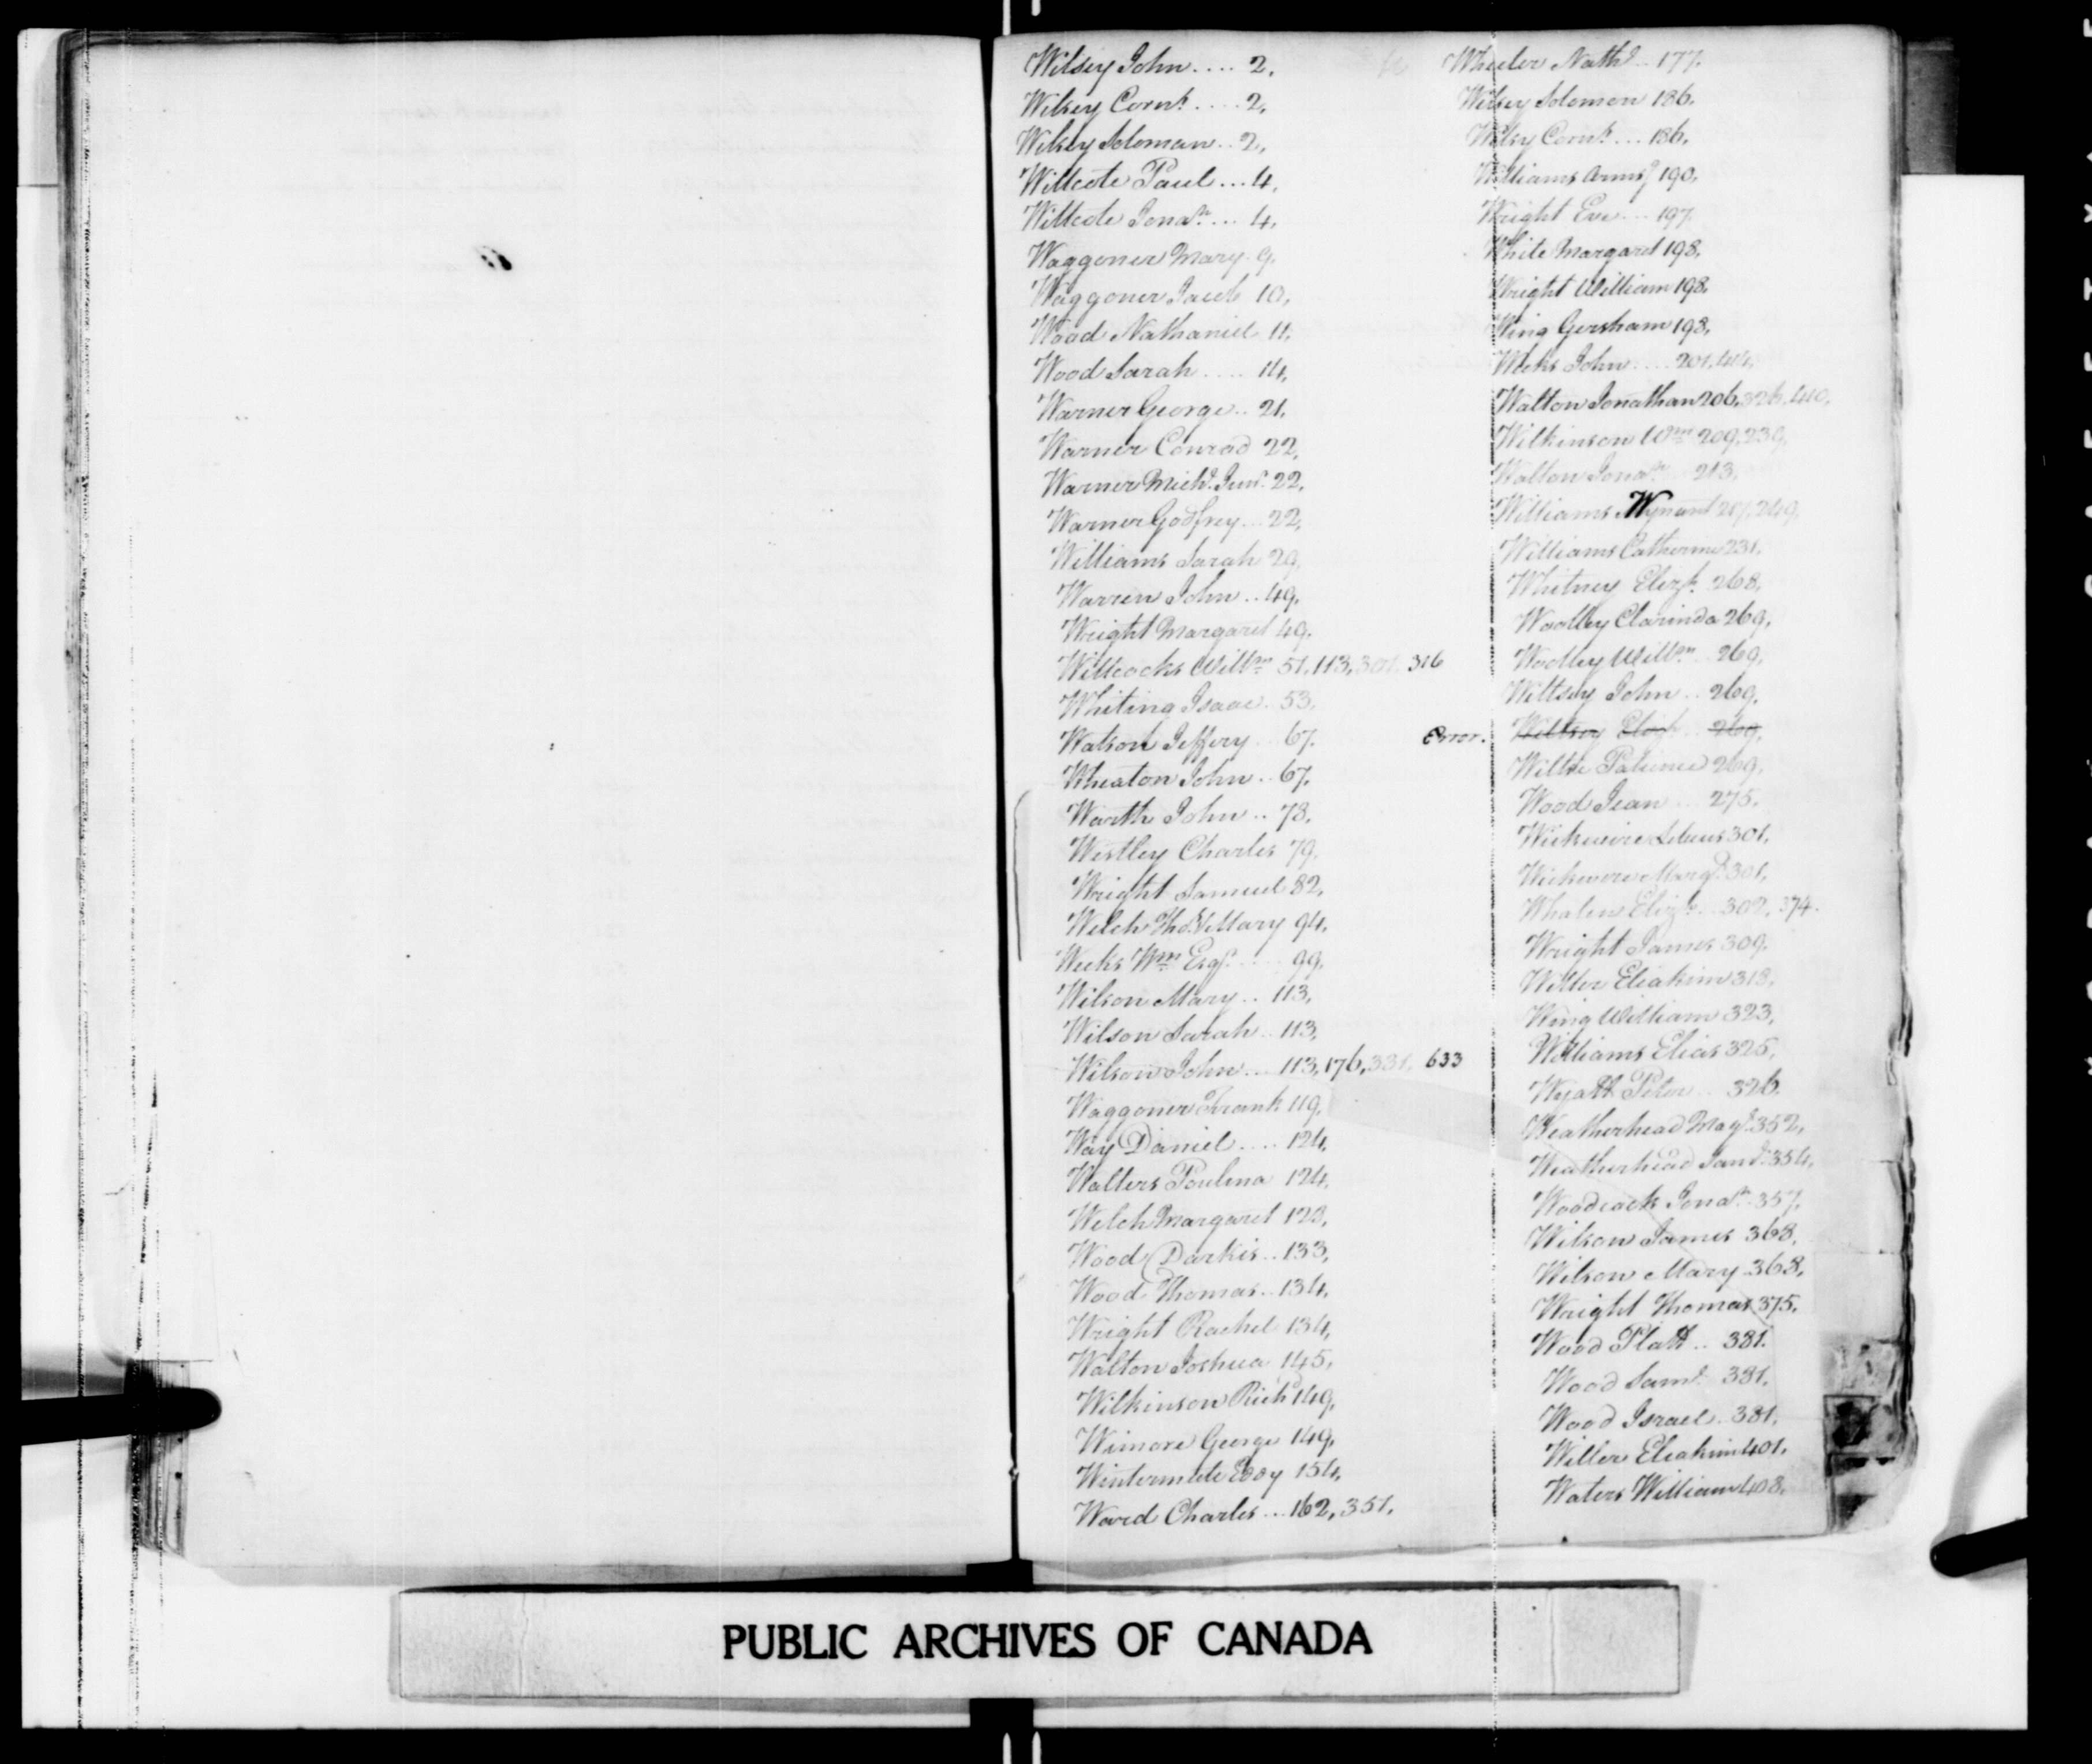 Wilsey John .... 2,
Wilsey Corns. .... 2,
Wilsey Soloman .. 2,
Willcote Paul ... 4,
Willcote Jonan. ... 4,
Waggoner Mary . 9,
Waggoner Jacob 10,
Wood Nathaniel 11,
Wood Sarah .... 14,
Warner George .. 21,
Warner Conrad 22,
Warner Michl. Junr. 22,
Warner Godfrey ... 22,
Williams Sarah 29,
Warren John .. 49,
Wright Margaret 49,
Willcocks Willm. 51, 113, 301, 316
Whiting Isaac . 53,
Watson Jeffery .. 67,
Wheaton John .. 67,
Warth John .. 78,
Westley Charles 79,
Wright Samuel 82,
Welch Thos. & Mary 94,
Weeks Wm. Esqr. .... 99,
Wilson Mary .. 113,
Wilson Sarah .. 113,
Wilson John ... 113, 176, 331, 633
Waggoner Frank 119,
Way Daniel .... 124,
Walters Paulina 124,
Welch Margaret 128,
Wood Darkis .. 133,
Wood Thomas .. 134,
Wright Rachel 134,
Walton Joshua 145,
Wilkinson Richd 149,
Wimore George 149,
Wintermute 154,
Ward Charles ... 162, 351,
Wheeler Nathl. .. 177,
Wilsey Solomon 186,
Wilsy Corns. ... 186,
Williams Armsg 190,
Wright Eve ... 197,
White Margaret 198,
Wright William 198,
Wing Gersham 198,
Weeks John .... 201, 44,
Walton Jonathan 206, 326, 410,
Wilkinson Wm 209, 239,
Walton Jonan. 213,
Williams Wynant 217, 249,
Williams Catherine 231,
Whitney Elizh. 268,
Woolley Clarinda 269,
Woolley Willm. .. 269,
Wiltsey John .. 269,
Error. Wiltsey 269,
Wiltse Patience 269,
Wood Jean ... 275,
Wickwire 301,
Wickwire Margt. 301,
Whalen Elizh. .. 302, 374.
Wright James 309,
Willer Eliakim 318,
Wing William 323,
Williams Elias 325,
Wyatt Peter .. 326,
Weatherhead 352,
Weatherhead Saml. 354,
Woodcock Jonan. 357,
Wilson James 368,
Wilson Mary . 368,
Wright Thomas 375,
Wood Platt .. 381.
Wood Saml. 381,
Wood Israel .. 381,
Willer Eliakim 401,
Waters William 408,
PUBLIC ARCHIVES OF CANADA